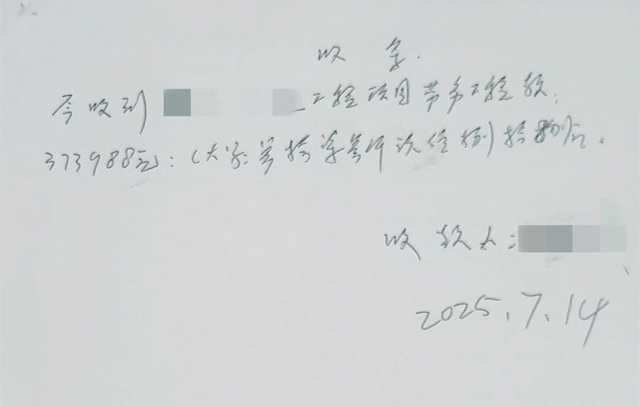 收条.
今收到 工程项目劳务工程款:
373988元:(大写:叁拾 叁仟 佰捌拾捌元.
收款人:
2025.7.14